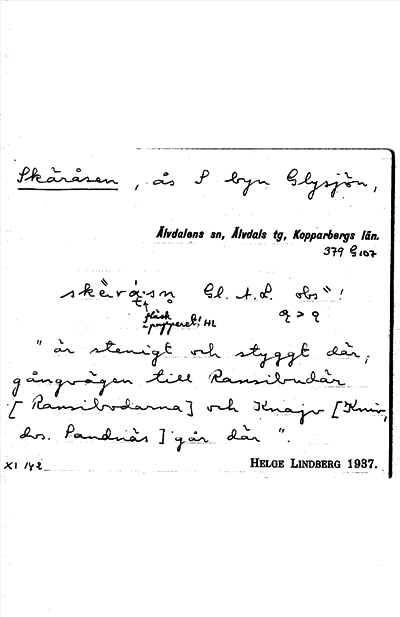 Skäråsen, ås S byn Glysjön,
Älvdalens sn, Älvdals tg, Kopparbergs län.
379 G 107
Gl. A. L. obs"!
fläck
i papperet! HL
"är stenigt och styggt där,
gångvägen till Ransibudär
[Ransibodarna] och Knajv [Kniv,
dvs. Sandnäs] går där".
XI 142
HELGE LINDBERG 1937.